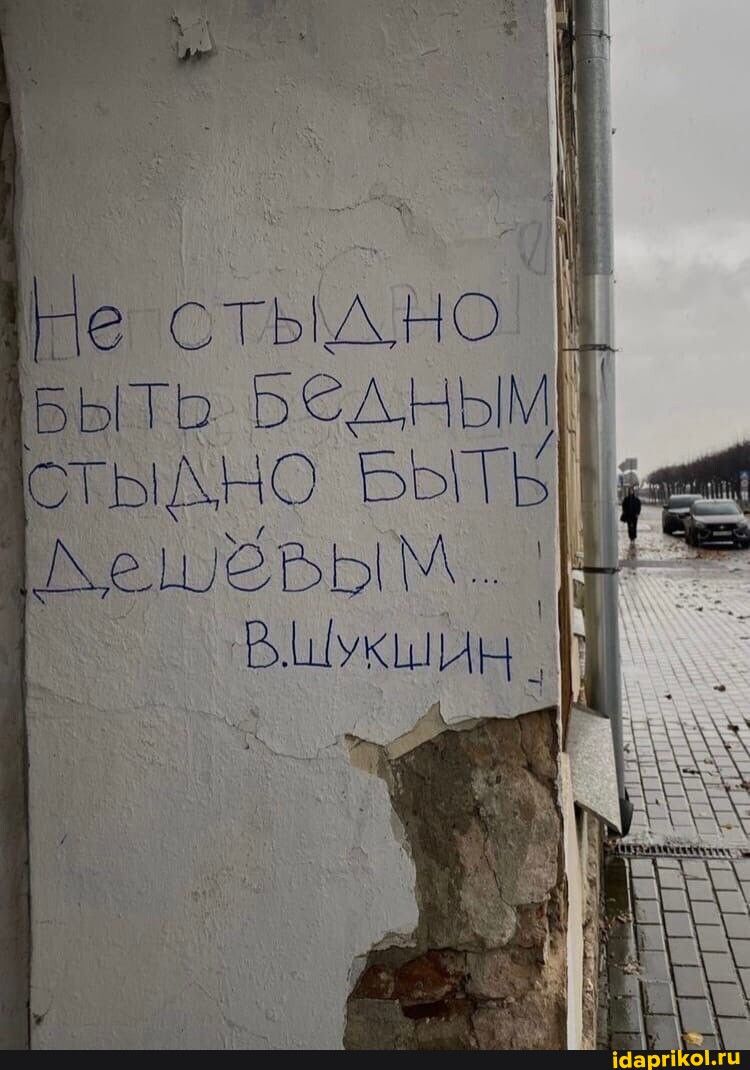 Не стыдно
быть бедным
стыдно быть
дешёвым...
В.Шукшин
idaprikol.ru